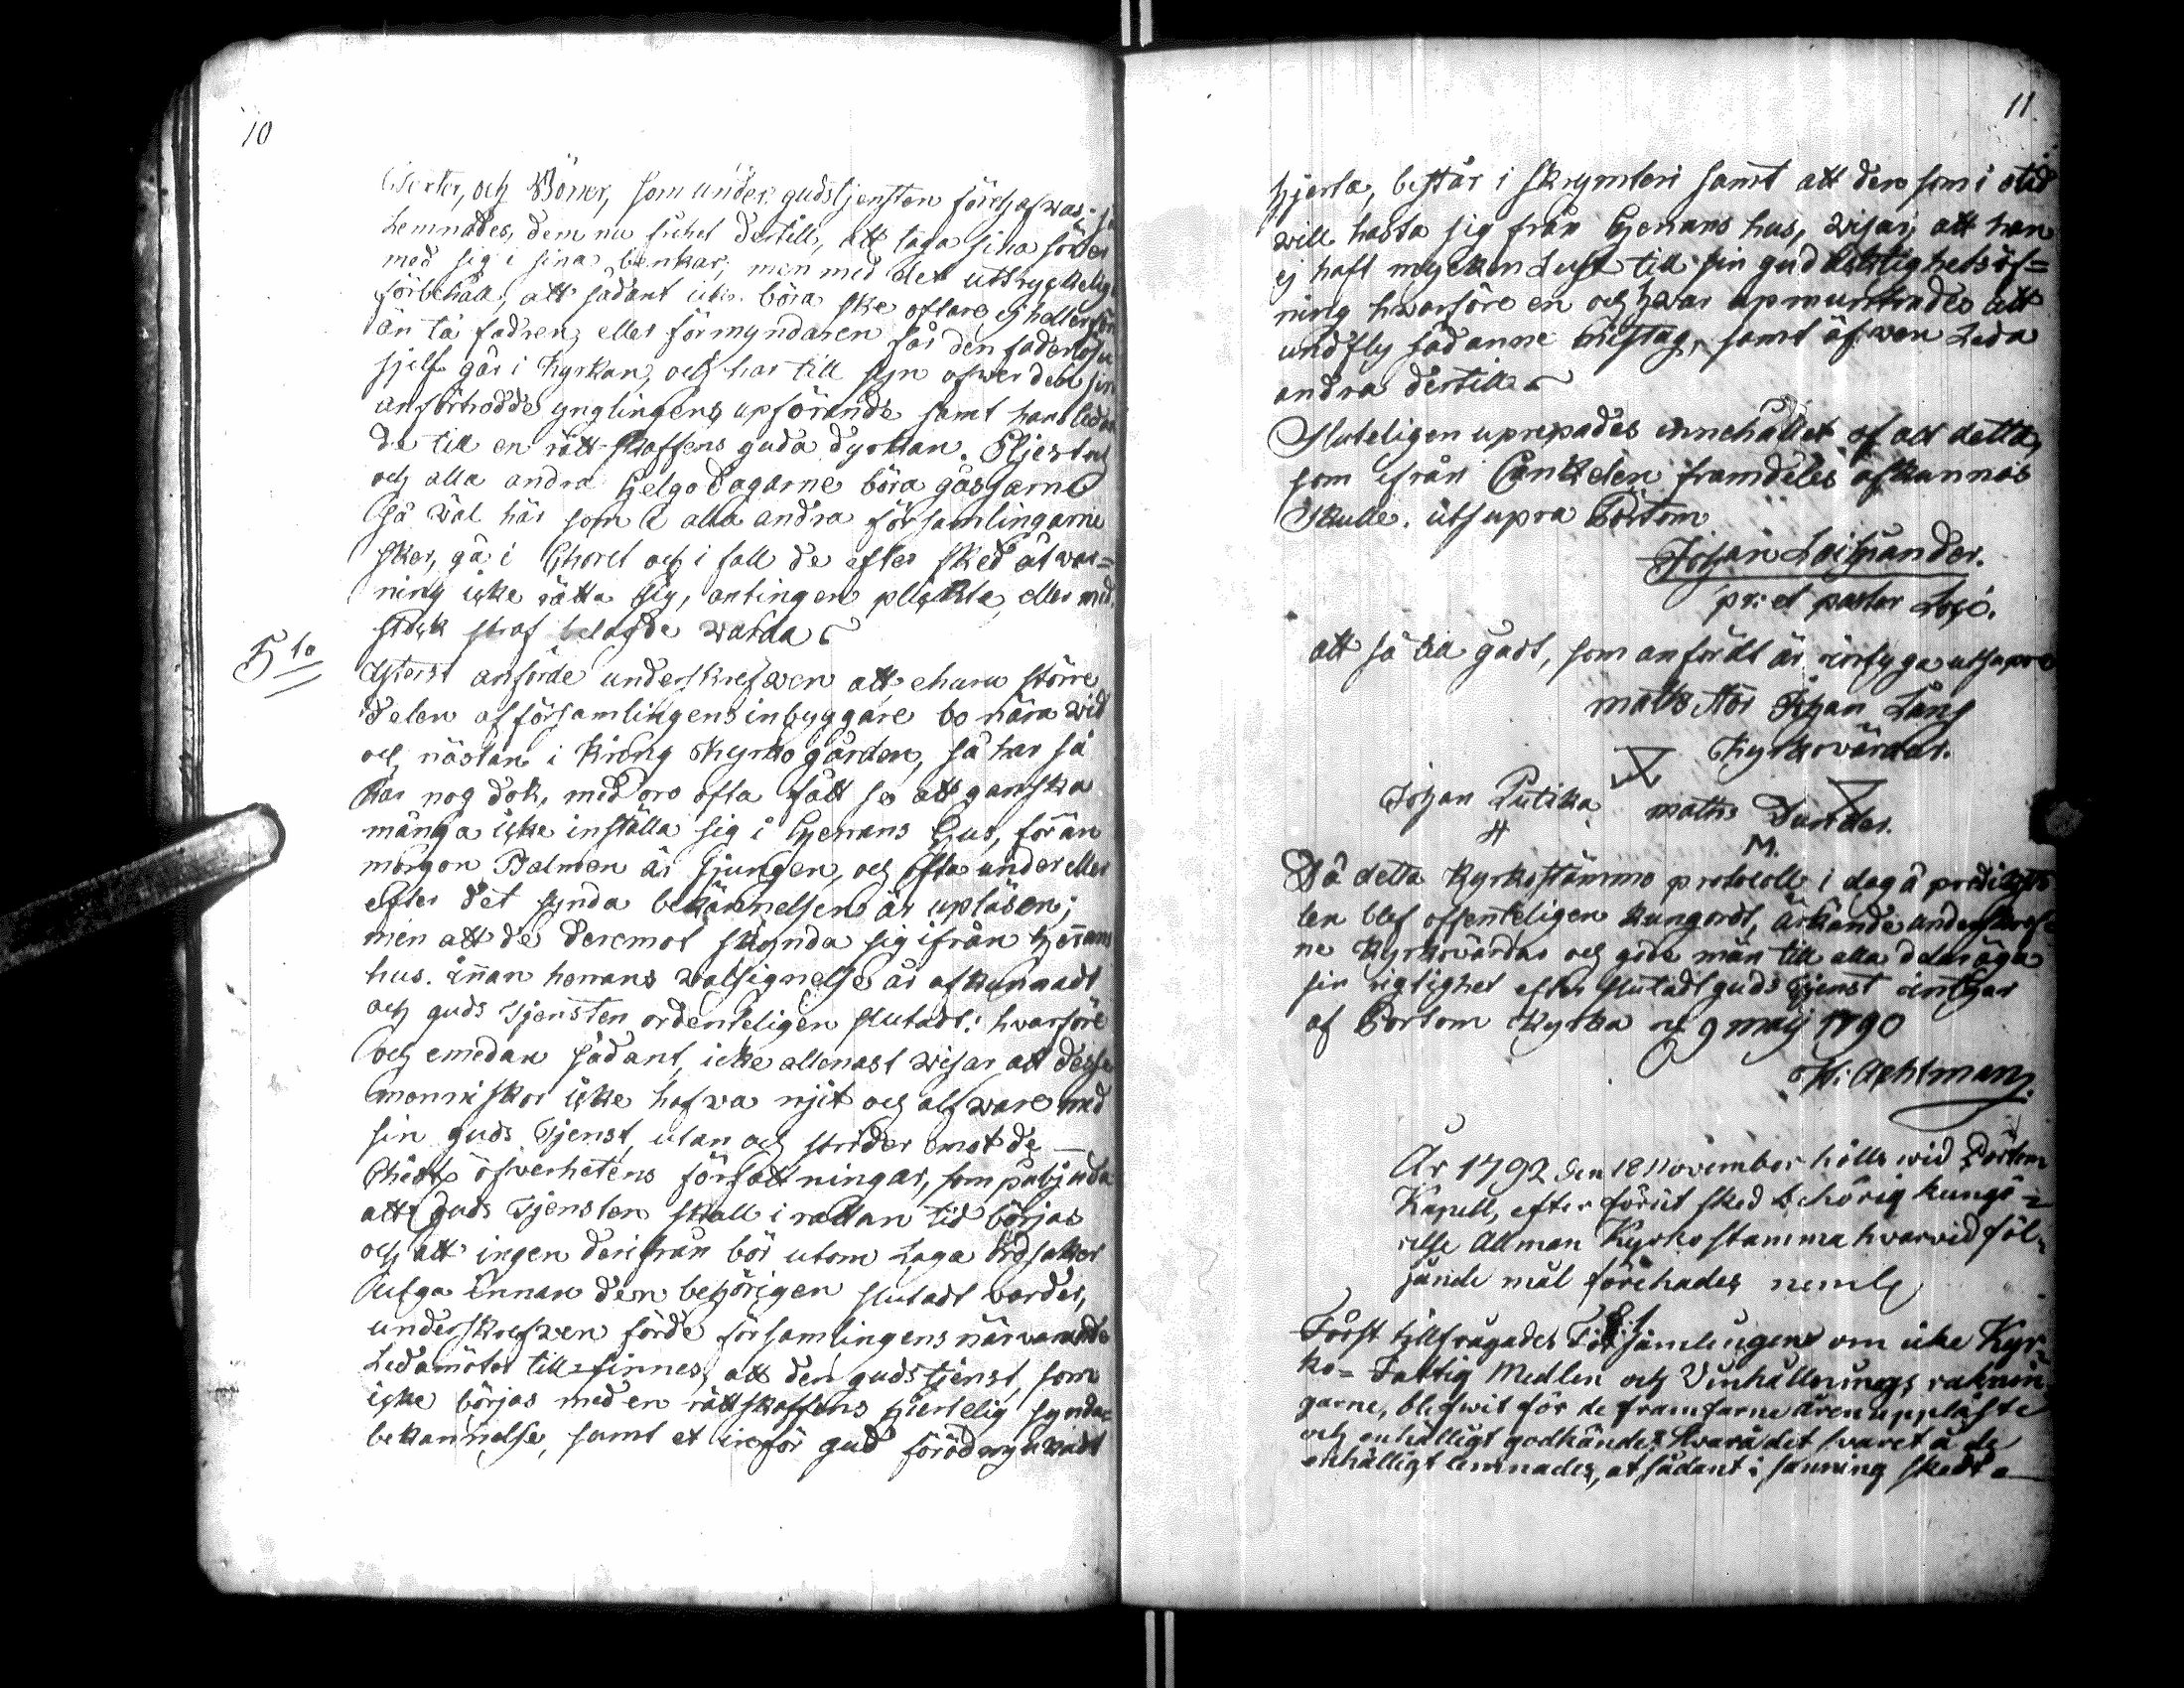 10
texter, och Böner, som under gudstjensten förehafwas: så
Lemnades, dem nu frihet dertill, att taga sina söner
med sig i sina benkar; men med det uttryckelig
förbehåll, att sådant icke böra ske oftare ej heller för
än tå fadren, eller förmyndaren får den faderlösa
sjelf går i Kyrkan, och har till syn öfwer den sin
anförtrodde ynglingens upförande samt hans ledan
de till en rätt skaffens guda dyrkan.
och alla andra Helgo Dagarne böra gåssarne
så wäl här som i alla andra församlingarne
sker, gå i Choret och i fall de efter sked åtwar=
ning icke rätta sig, antingen plickta, eller med
stock straf belagde warda
5to
Ytterst anförde underskrefwen att, ehuru större
delen af församlingens inbyggare bo nära wid
och nästan i kring Kyrkogården, så har så
har nog dok, med oro ofta fått se att ganska
många icke inställa sig i Herrans Hus, förr än
morgon Psalmen är sjungen, och ofta under eller
efter det synda bekännelsen är upläsen;
men att de deremot skynda sig ifrån Herrans
hus. innan herrans wälsignelse är afkunnadt
och guds Tjensten ordenteligen slutadt: hvarföre
och emedan sådant, icke allenast wisar att desse
menniskor icke hafva nijt och alfware med
sin guds Tjenst, utan och strider emot de
öfverhetens författningar, som påbjuda
att guds Tjensten skall i rättan tid börjas
och att ingen derifrån bör utom Laga orsaker
utga innan den behörigen slutadt warder,
underskrefwen förde församlingens närwarande
Ledamöter till sinnes, att den gudstjenst, som
icke börjas med en rättskaffens hjertelig synda=
bekännelse, samt et inför gud förödmjukadt
11
hjerta, består i skrymteri samt att den som i otid
will hasta sig från Herrans hus, wisar, att han
ej haft mycken Lust till sin gudacktighetsöf=
ning hwarföre en och hwar upmuntrades att
undfly sådanne mistag, samt äfwen Leda
andra dertill
Sluteligen uprepades innehållet af alt detta,
som ifrån Cantzelen framdeles afkunnas
skulle. ut supra Pörtom
Johan
pr: et pastor Loci.
att så till gådt, som anfördt är, intyga ut supra
matts Stor Johan Lång
Kyrkovärdar.
Johan Putika matts
H M.
Då detta kyrkostämmo protocoll i dag å predikosto
len blef offenteligen kungordt, ärkände underskrefs
ne kyrkovärdar och gode män till alla delar äga
sin rigtighet efter slutadt guds tjenst intygar
af Portom Kyrka d. 9 maij 1790
Achtman.
År 1792 den 18 November hölls wid Pörtom
Kapell, efter förut sked behörig kungö=
relse Allmän Kyrkostämma hvarvid föl=
jande mål förehades neml.
§ 1
Först tillfrågades Församlingen om icke Kyr=
ko= Fattig Medlen och Vinhållnings räknin
garne, blifwit för de framfarne åren uppläste
och enhälligt godkände? Hvarå det swaret å de
enhälligt lemnades, at sådant i sanning skedt